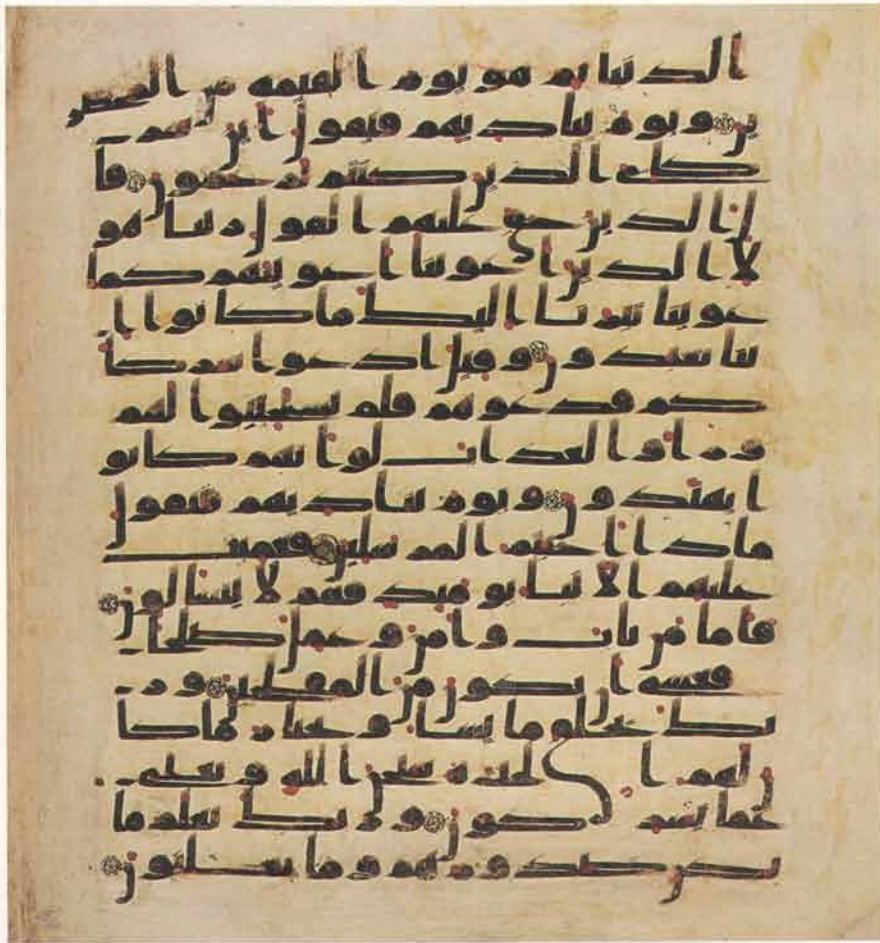 الدنيا ثم هو يوم القيمة من المحضر
ين ويوم يناديهم فيقول اين شر
كاى الذين كنتم تزعمون قا
ل الذين حق عليهم القول ربنا هو
لا الذين اغوينا اغوينهم كما
غوينا تبرانا اليك ما كانوا ا
يانا يعبدون وقيل ادعوا شركا
كم فدعوهم فلم يستجيبوا لهم
وراوا العذاب لو انهم كانو
ا يهتدون ويوم يناديهم فيقول
ماذا اجبتم المرسلين فعميت
عليهم الانبا يوميذ فهم لا يتسالون
فاما من تاب وامن وعمل صلحا
فعسى ان يكون من المفلحين ور
بك يخلق ما يشا ويختار ما كا
ن لهم الخيرة سبحن الله وتعلى
عما يشركون وربك يعلم ما
تكن صدورهم وما يعلنون